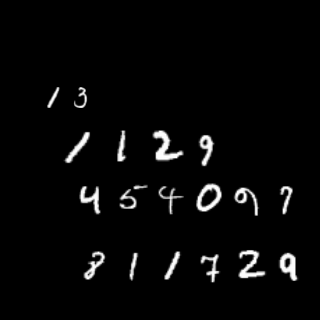 1 3
1 1 2 9
4 5 4 0 9 7
8 1 1 7 2 9